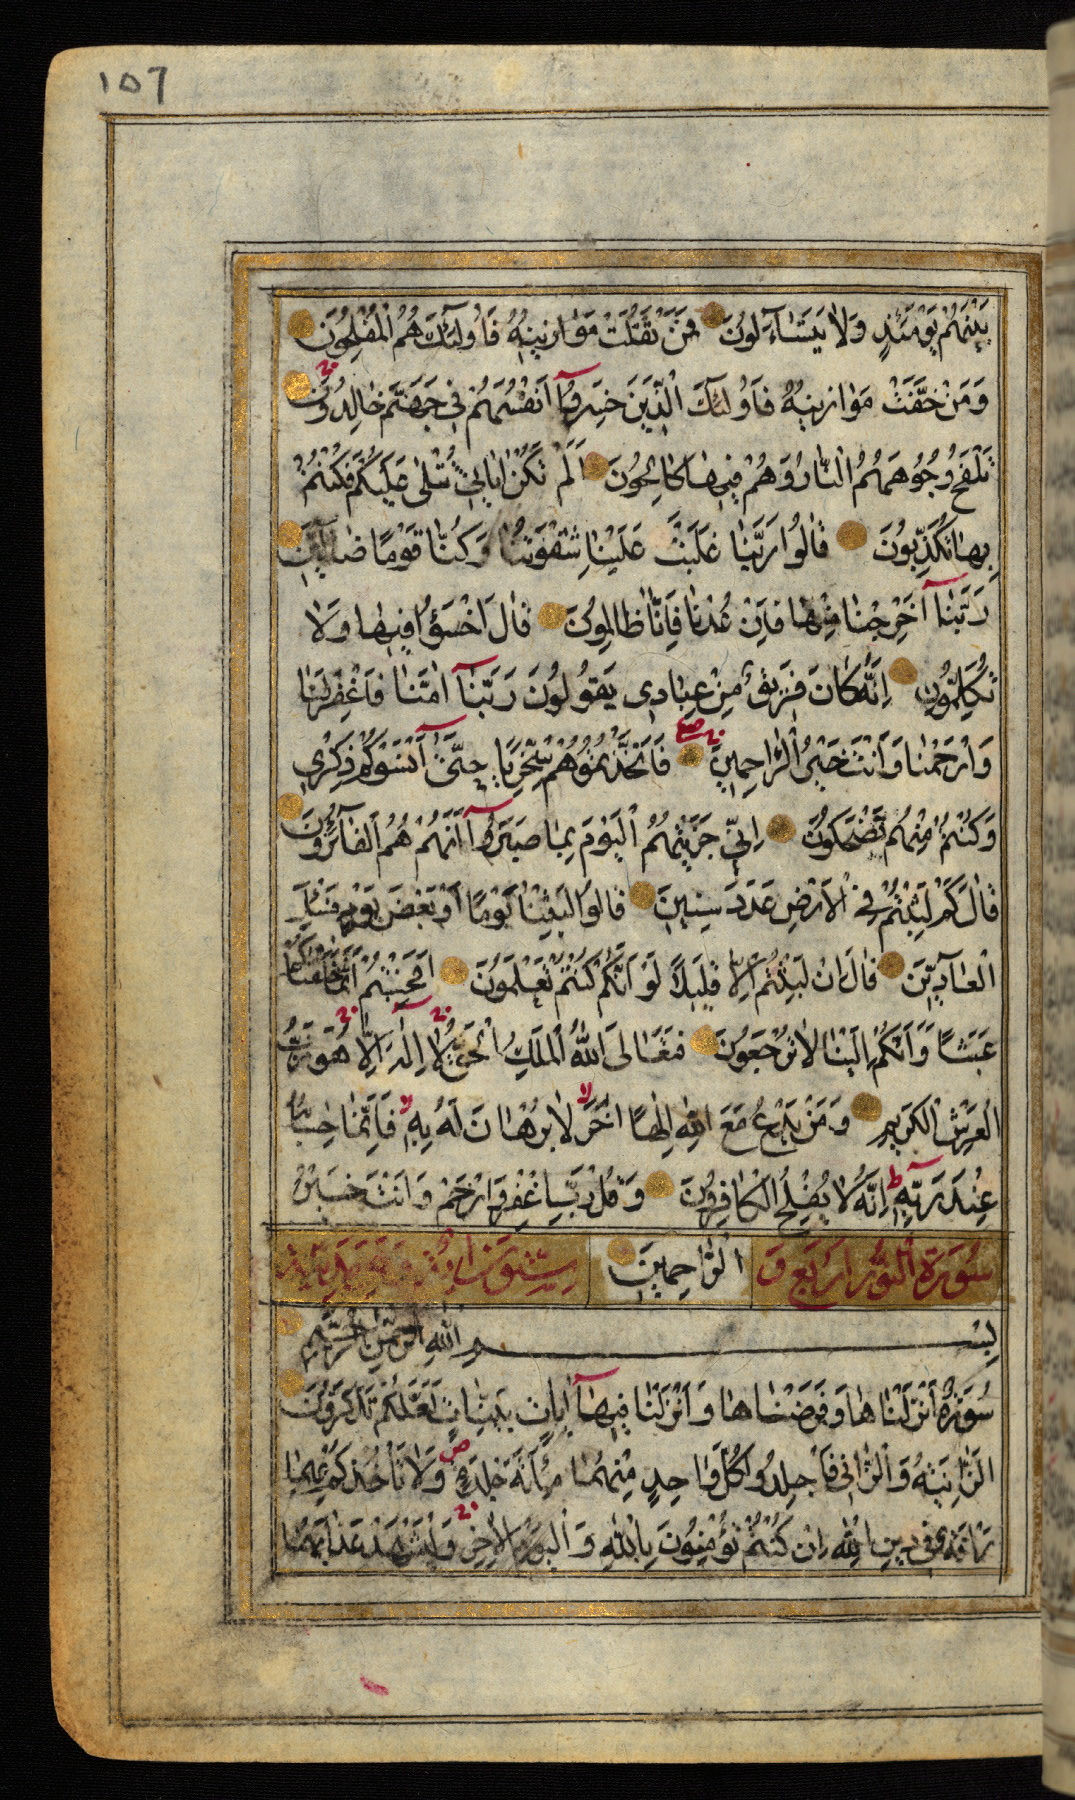 ١٥٦
بَيْنَهُمْ يَوْمَئِذٍ وَلَا يَتَسَاءَلُونَ فَمَنْ ثَقُلَتْ مَوَازِينُهُ فَأُولَٰئِكَ هُمُ الْمُفْلِحُونَ
وَمَنْ خَفَّتْ مَوَازِينُهُ فَأُولَٰئِكَ الَّذِينَ خَسِرُوا أَنْفُسَهُمْ فِي جَهَنَّمَ خَالِدُونَ
تَلْفَحُ وُجُوهَهُمُ النَّارُ وَهُمْ فِيهَا كَالِحُونَ أَلَمْ تَكُنْ آيَاتِي تُتْلَىٰ عَلَيْكُمْ فَكُنْتُمْ
بِهَا تُكَذِّبُونَ قَالُوا رَبَّنَا غَلَبَتْ عَلَيْنَا شِقْوَتُنَا وَكُنَّا قَوْمًا ضَالِّينَ
رَبَّنَا أَخْرِجْنَا مِنْهَا فَإِنْ عُدْنَا فَإِنَّا ظَالِمُونَ قَالَ اخْسَؤُا فِيهَا وَلَا
تُكَلِّمُونِ إِنَّهُ كَانَ فَرِيقٌ مِنْ عِبَادِي يَقُولُونَ رَبَّنَا آمَنَّا فَاغْفِرْ لَنَا
وَارْحَمْنَا وَأَنْتَ خَيْرُ الرَّاحِمِينَ فَاتَّخَذْتُمُوهُمْ سِخْرِيًّا حَتَّىٰ أَنْسَوْكُمْ ذِكْرِي
وَكُنْتُمْ مِنْهُمْ تَضْحَكُونَ إِنِّي جَزَيْتُهُمُ الْيَوْمَ بِمَا صَبَرُوا أَنَّهُمْ هُمُ الْفَائِزُونَ
قَالَ كَمْ لَبِثْتُمْ فِي الْأَرْضِ عَدَدَ سِنِينَ قَالُوا لَبِثْنَا يَوْمًا أَوْ بَعْضَ يَوْمٍ فَسْئَلِ
الْعَادِّينَ قَالَ إِنْ لَبِثْتُمْ إِلَّا قَلِيلًا لَوْ أَنَّكُمْ كُنْتُمْ تَعْلَمُونَ أَفَحَسِبْتُمْ أَنَّمَا خَلَقْنَاكُمْ
عَبَثًا وَأَنَّكُمْ إِلَيْنَا لَا تُرْجَعُونَ فَتَعَالَى اللَّهُ الْمَلِكُ الْحَقُّ لَا إِلَٰهَ إِلَّا هُوَ رَبُّ
الْعَرْشِ الْكَرِيمِ وَمَنْ يَدْعُ مَعَ اللَّهِ إِلَٰهًا آخَرَ لَا بُرْهَانَ لَهُ بِهِ فَإِنَّمَا حِسَابُهُ
عِنْدَ رَبِّهِ إِنَّهُ لَا يُفْلِحُ الْكَافِرُونَ وَقُلْ رَبِّ اغْفِرْ وَارْحَمْ وَأَنْتَ خَيْرُ
سُورَةُ النُّور اربع و الرَّاحِمِينَ ستون
بِسْمِ اللَّهِ الرَّحْمَٰنِ الرَّحِيمِ
سُورَةٌ أَنْزَلْنَاهَا وَفَرَضْنَاهَا وَأَنْزَلْنَا فِيهَا آيَاتٍ بَيِّنَاتٍ لَعَلَّكُمْ تَذَكَّرُونَ
الزَّانِيَةُ وَالزَّانِي فَاجْلِدُوا كُلَّ وَاحِدٍ مِنْهُمَا مِائَةَ جَلْدَةٍ وَلَا تَأْخُذْكُمْ بِهِمَا
رَأْفَةٌ فِي دِينِ اللَّهِ إِنْ كُنْتُمْ تُؤْمِنُونَ بِاللَّهِ وَالْيَوْمِ الْآخِرِ وَلْيَشْهَدْ عَذَابَهُمَا